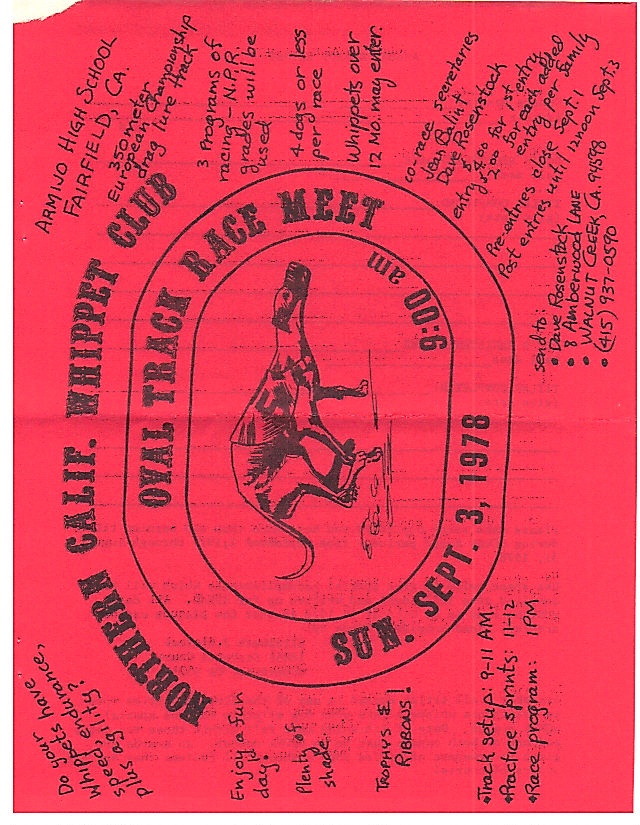 Do your
Whippets have
speed, endurance,
plus agility?
NORTHERN CALIF. WHIPPET CLUB
ARMIJO HIGH SCHOOL
FAIRFIELD, CA.
350 meter
European Championship
drag lure track
OVAL TRACK RACE MEET
9:00 am
SUN. SEPT. 3, 1978
Enjoy a fun
day.
Plenty of
shade
TROPHYS &
RIBBONS!
3 Programs of
racing - N.P.R.
grades will be
used
4 dogs or less
per race
Whippets over
12 Mo. may enter.
co-race secretaries
Jean Balint
Dave Rosenstock
entry $
$4.00 for 1st entry
2.00 for each added
entry per family
Pre-entries close Sept. 1
Post entries until 12 noon Sept. 3
•Track setup: 9-11 AM.
•Practice sprints: 11-12
•Race program: 1 PM.
send to:
• Dave Rosenstock
• 8 Amberwood LANE
• WALNUT CREEK, CA. 94598
• (415) 937-0590